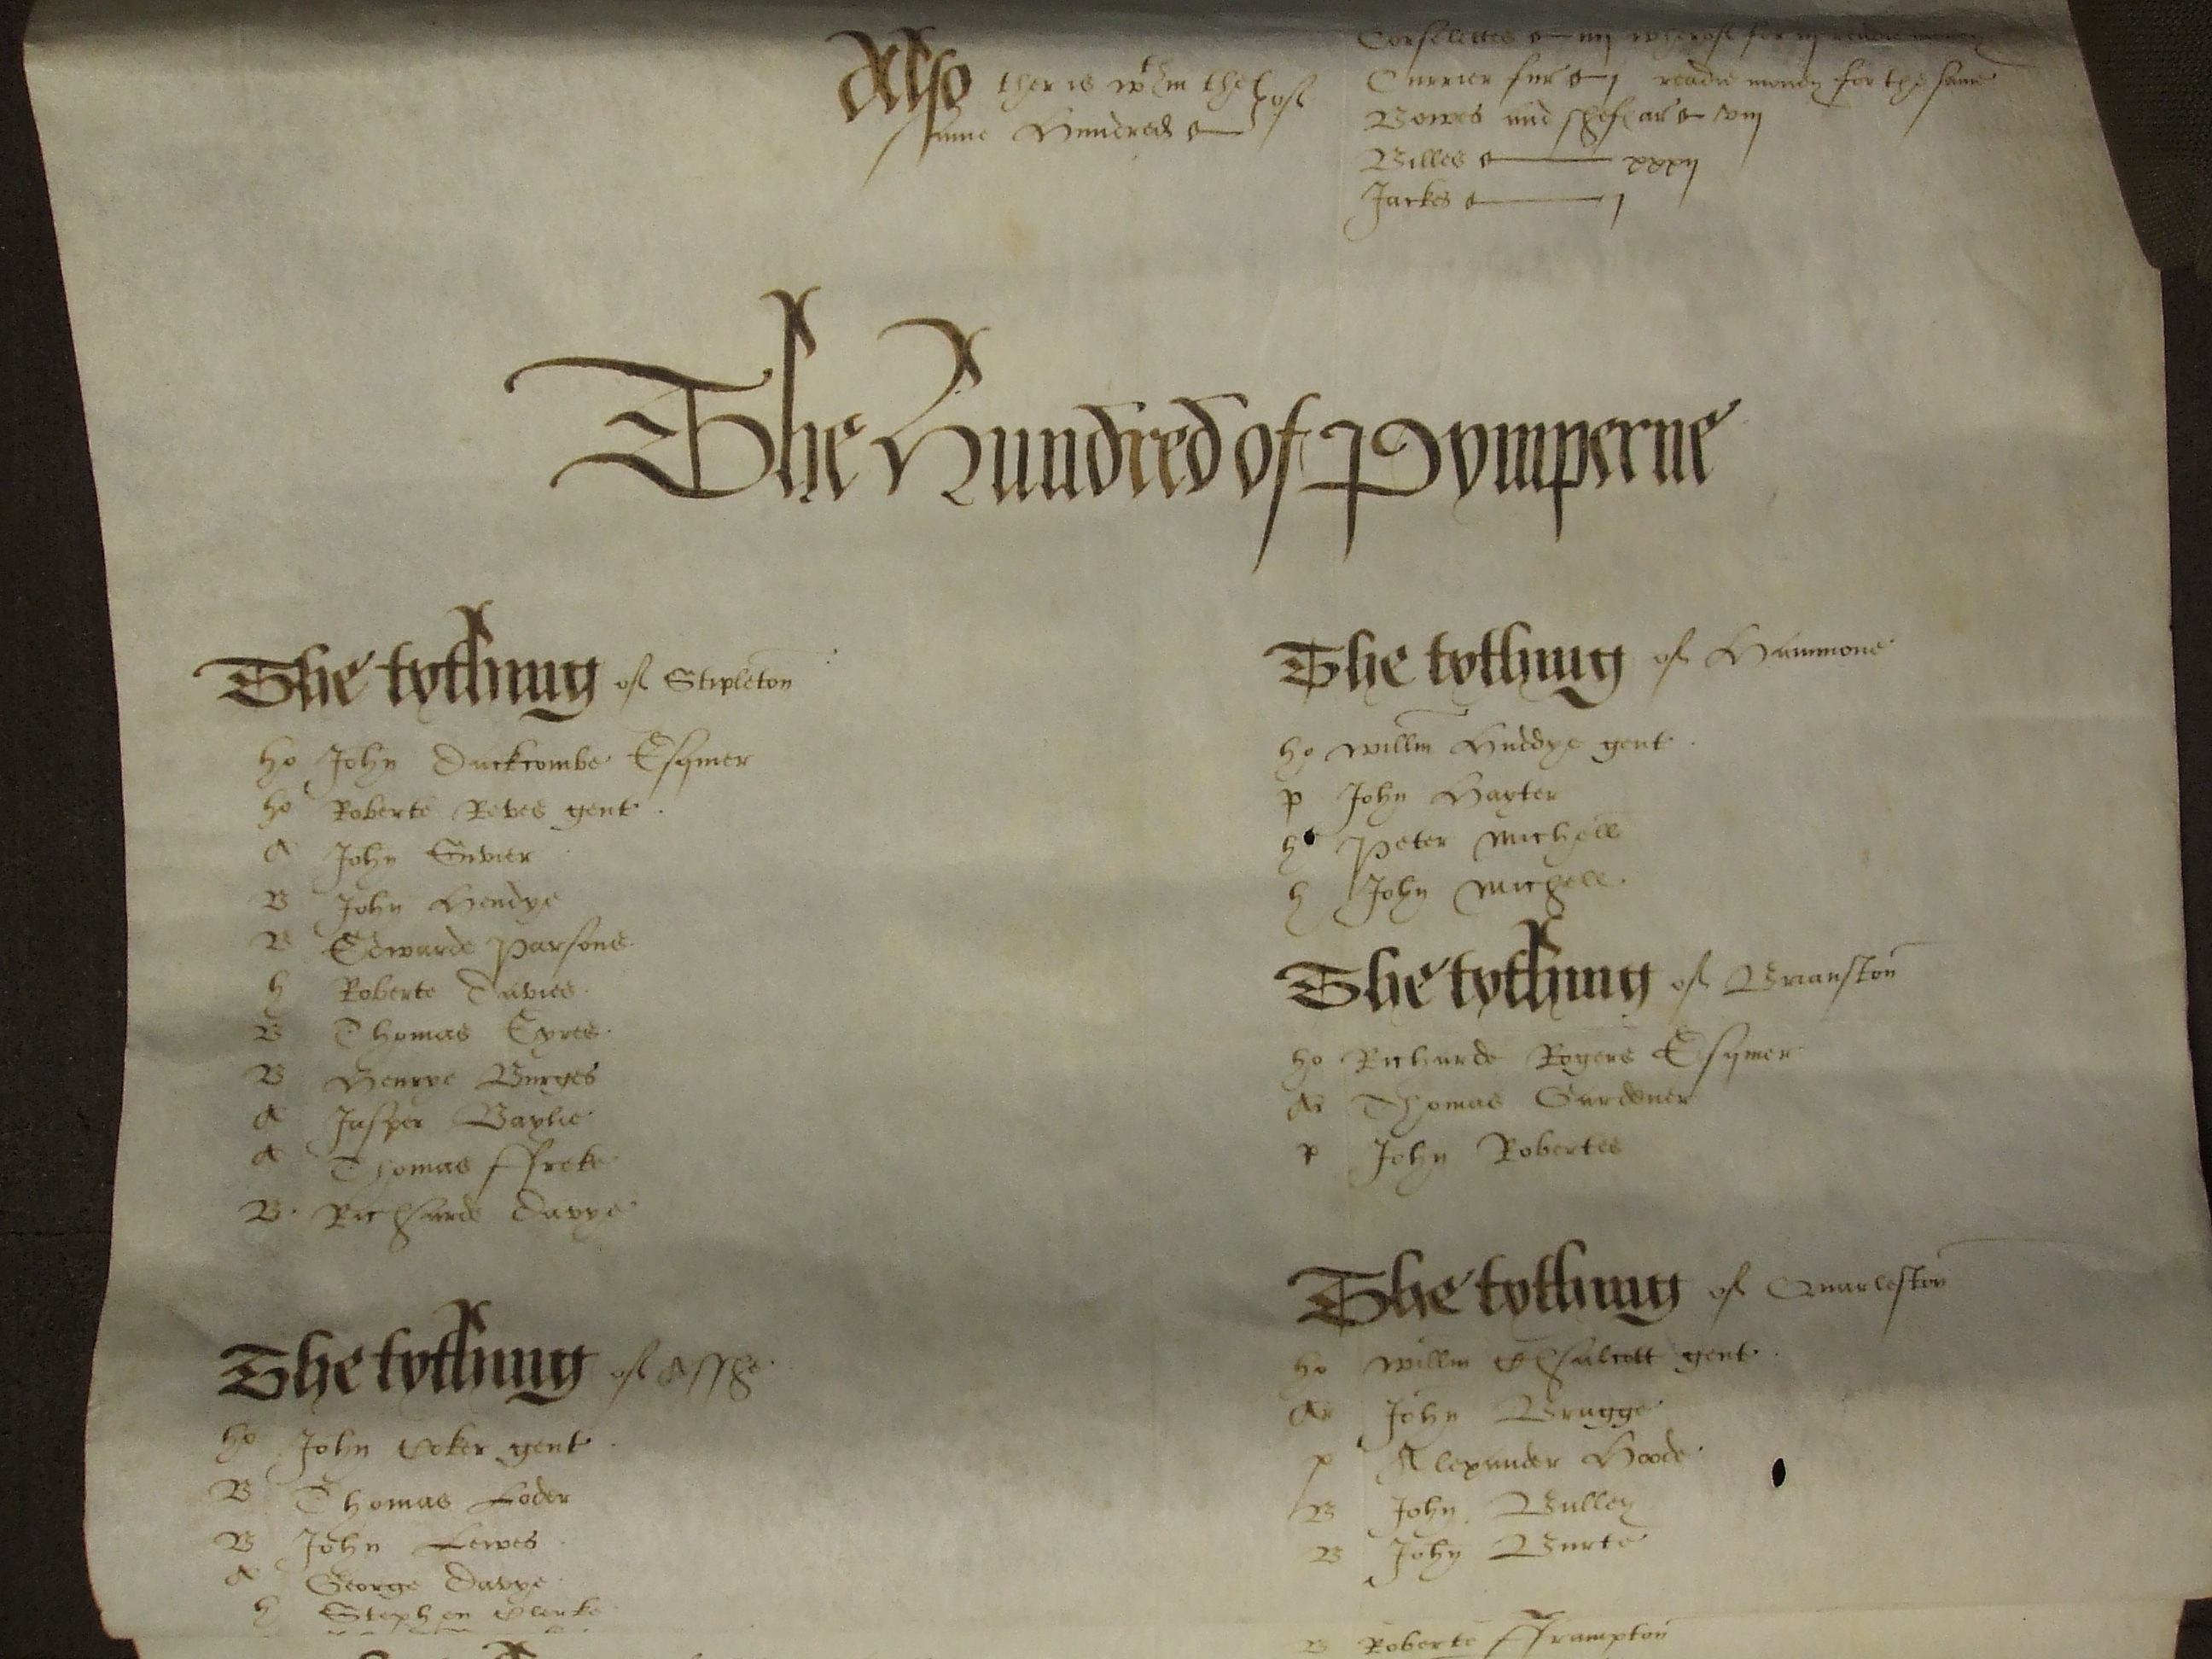 Also ther is wthin the of
same Hundred
Corselettes iiij wherof for iij readie money
Currier fur j readie money for the same
Bowes and shefe ar viij
Billes xxxij
Jackes j
The Hundred of Pymperne
The tything of Stipleton
ho John Duckcombe Esquier
ho Roberte Reves gent
A John Sivier
B John Hendye
B Edwarde Parsons
h Roberte Davies
B Thomas Eyres
B Henrye Burges
A Jasper Baylie
A Thomas ffreke
B Richarde Davye
The tything of Asshe
ho John Coker gent
B Thomas Loder
B John Lewes
A George Davye
h Stephen Clerke
The tything of Hammone
ho Willm Huddye gent
p John Hayter
h Peter Michell
h John Michell
The tything of Brianston
ho Richarde Rogers Esquier
Ar Thomas Gardener
p John Robertes
The tything of Quarleston
ho Willm Chalcott gent
Ar John Bragge
p Alexander Hoode
B John Bulley
B John Burte
B Roberte fframpton